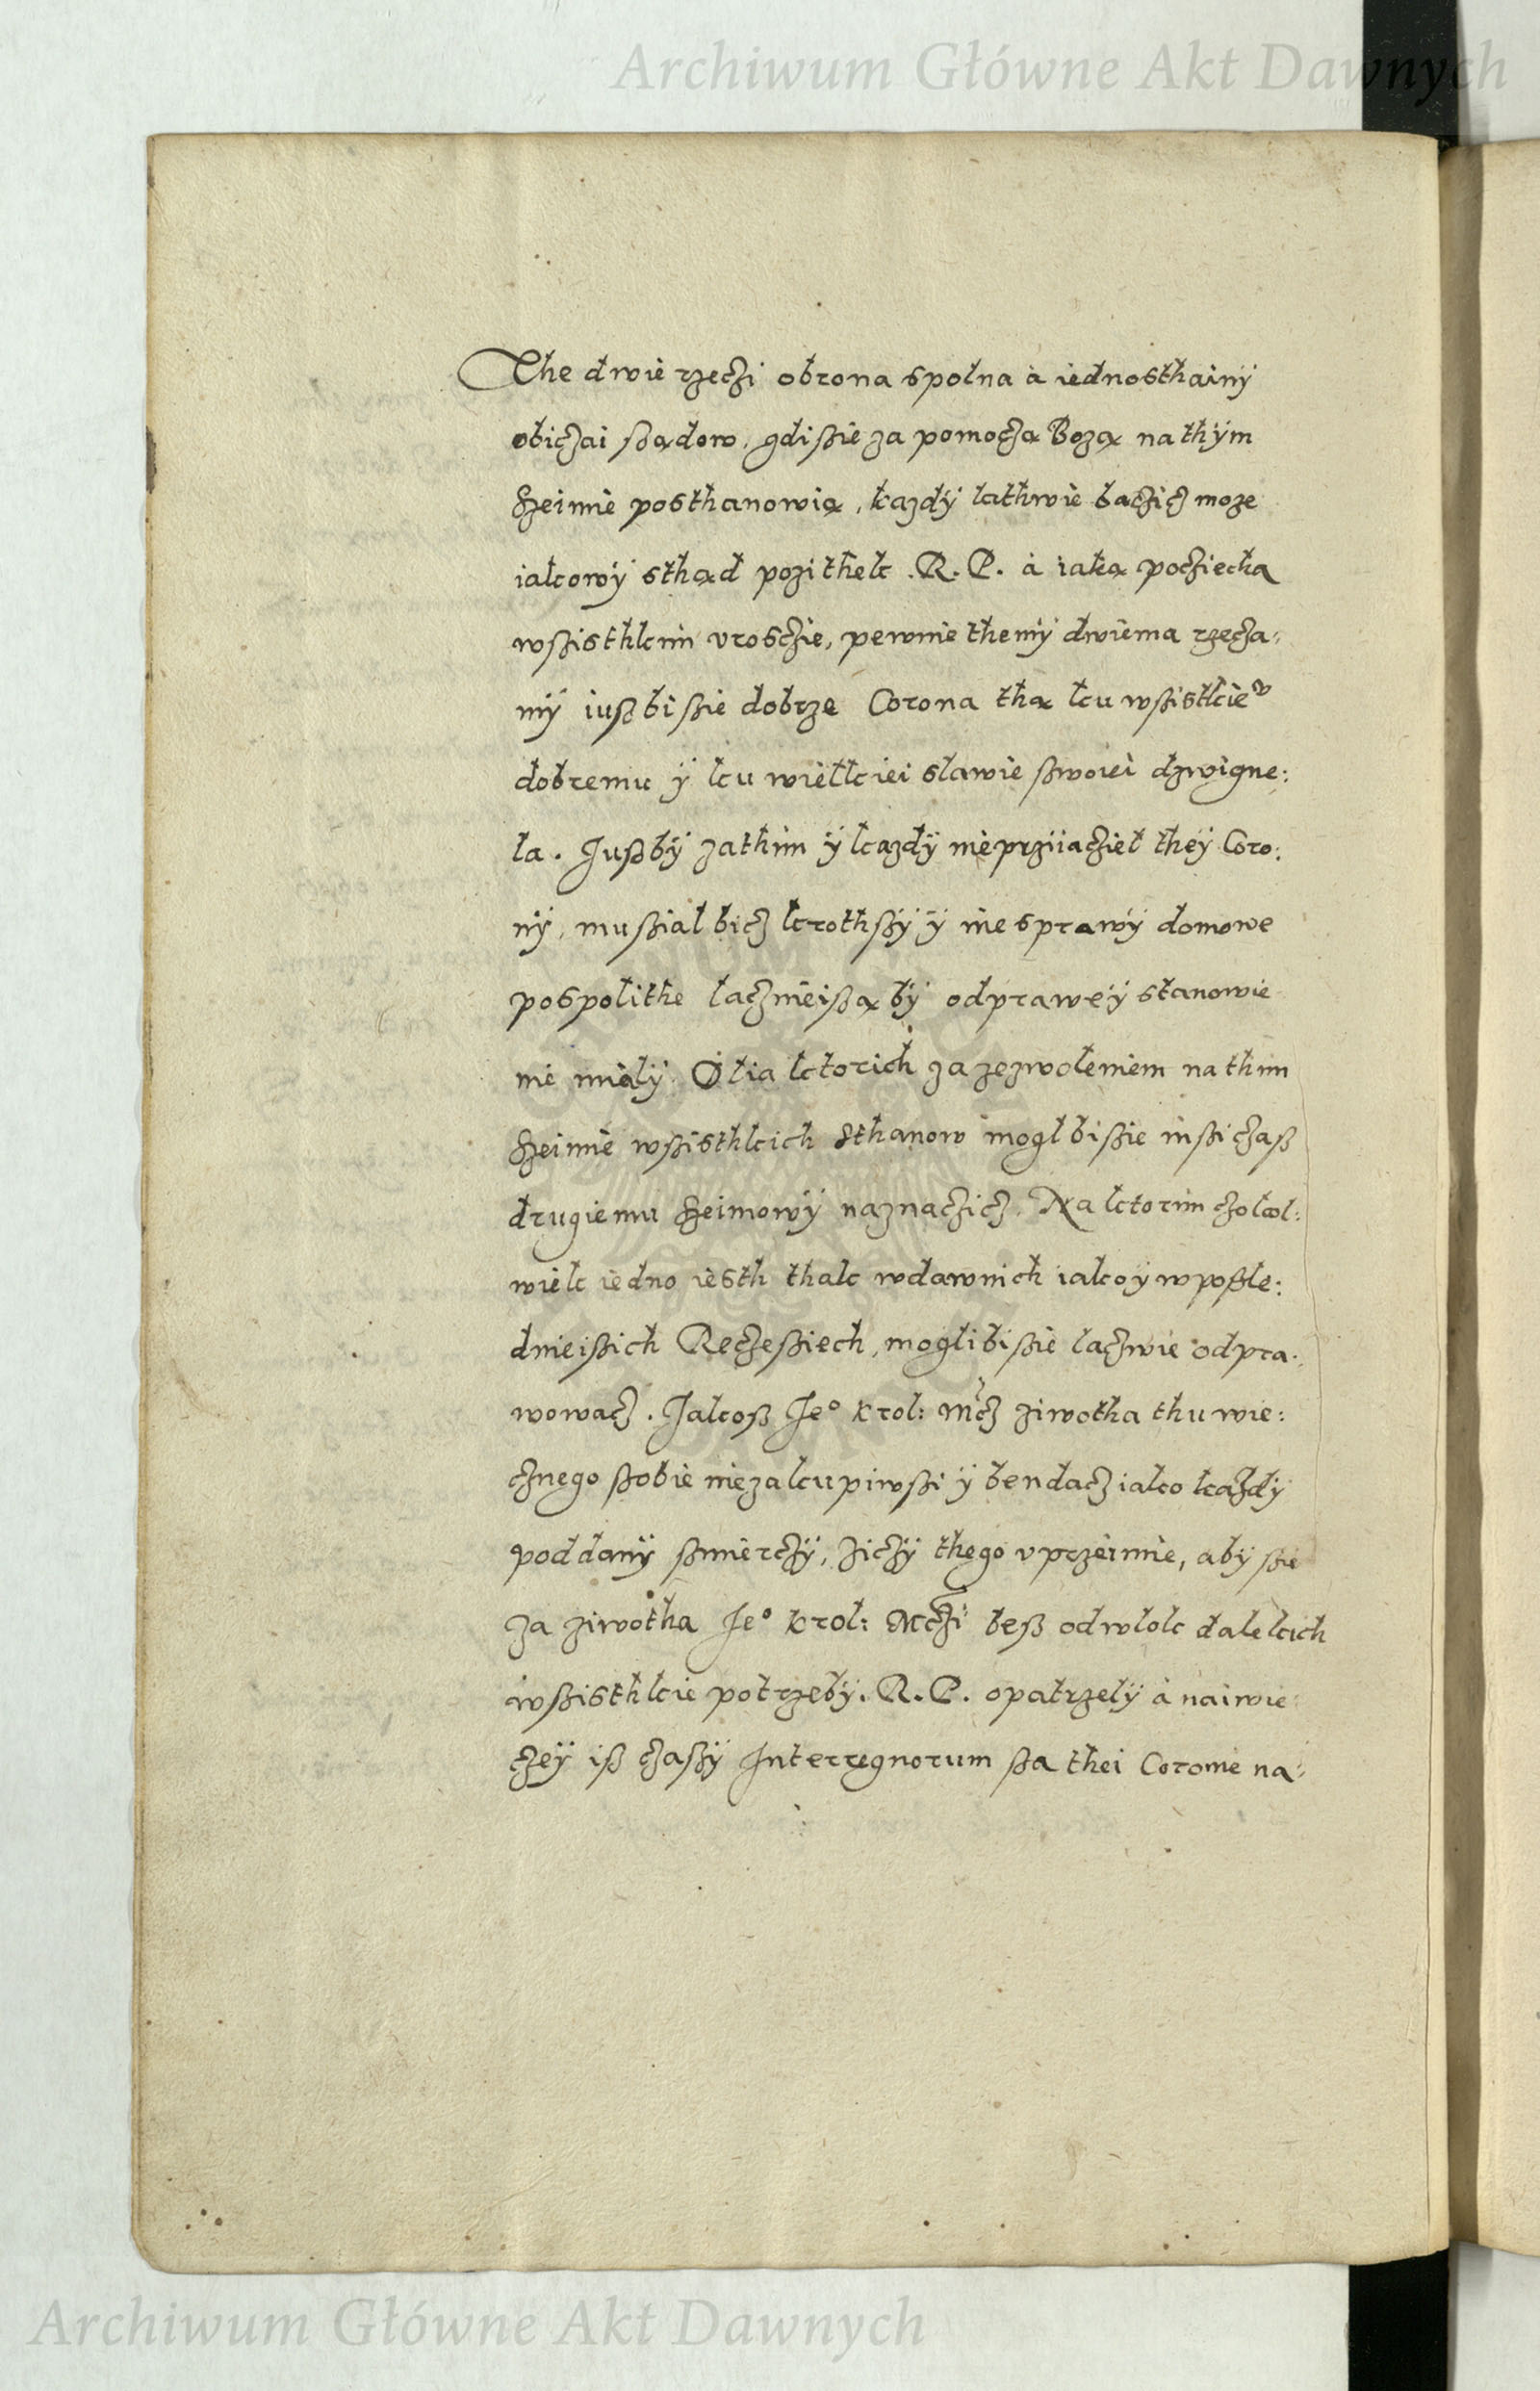 Archiwum Główne Akt Dawnych
The dwie rzeczi obrona spolna a iednosthainÿ
obiczai sądow, gdi ßie za pomoczą Bozą na thÿm
Szeimie posthanowią, kazdÿ lathwie baczicz moze
iakowÿ sthąd pozithek .R.P. a iaką pocziecha
wßisthkim vrosczie, pewnie themÿ dwiema rzecza:
mÿ iußbi ßie dobrze Corona thą ku wßistkie°
dobremu ÿ ku wielkiei slawie ßwoiei dzwigne:
la. Jußbÿ zathim ÿ kazdÿ nieprzÿiacziel theÿ Coro:
nÿ, mußial bicz krothßÿ ÿ nie sprawÿ domowe
pospolithe lacznieißą bÿ odpraweÿ stanowie
nie mielÿ. Dlia ktorich za zezwoleniem na thim
Szeimie wßisthkich Sthanow mogl bi ßie inßi czaß
drugiemu Szeimowÿ naznaczicz. Na ktorim czokol:
wiek iedno iesth thak wdawnich iako ÿ w poßle:
dnieißich Reczeßiech, mogli bi ßie laczwie odpra:
wowacz. Jakoß Je° krol: Mcz ziwotha thu wie:
cznego ßobie nie zakupiwßi ÿ bendacz iako kazdÿ
poddanÿ ßmierczÿ, ziczÿ thego vprzeimie, abÿ ßie
za ziwotha Je° krol: Mczi beß odwlok dalekich
wßisthkie potrzebÿ .R.P. opatrzelÿ a naiwie
czeÿ iß czaßÿ Interregnorum ßa thei Coronie na:
Archiwum Główne Akt Dawnych